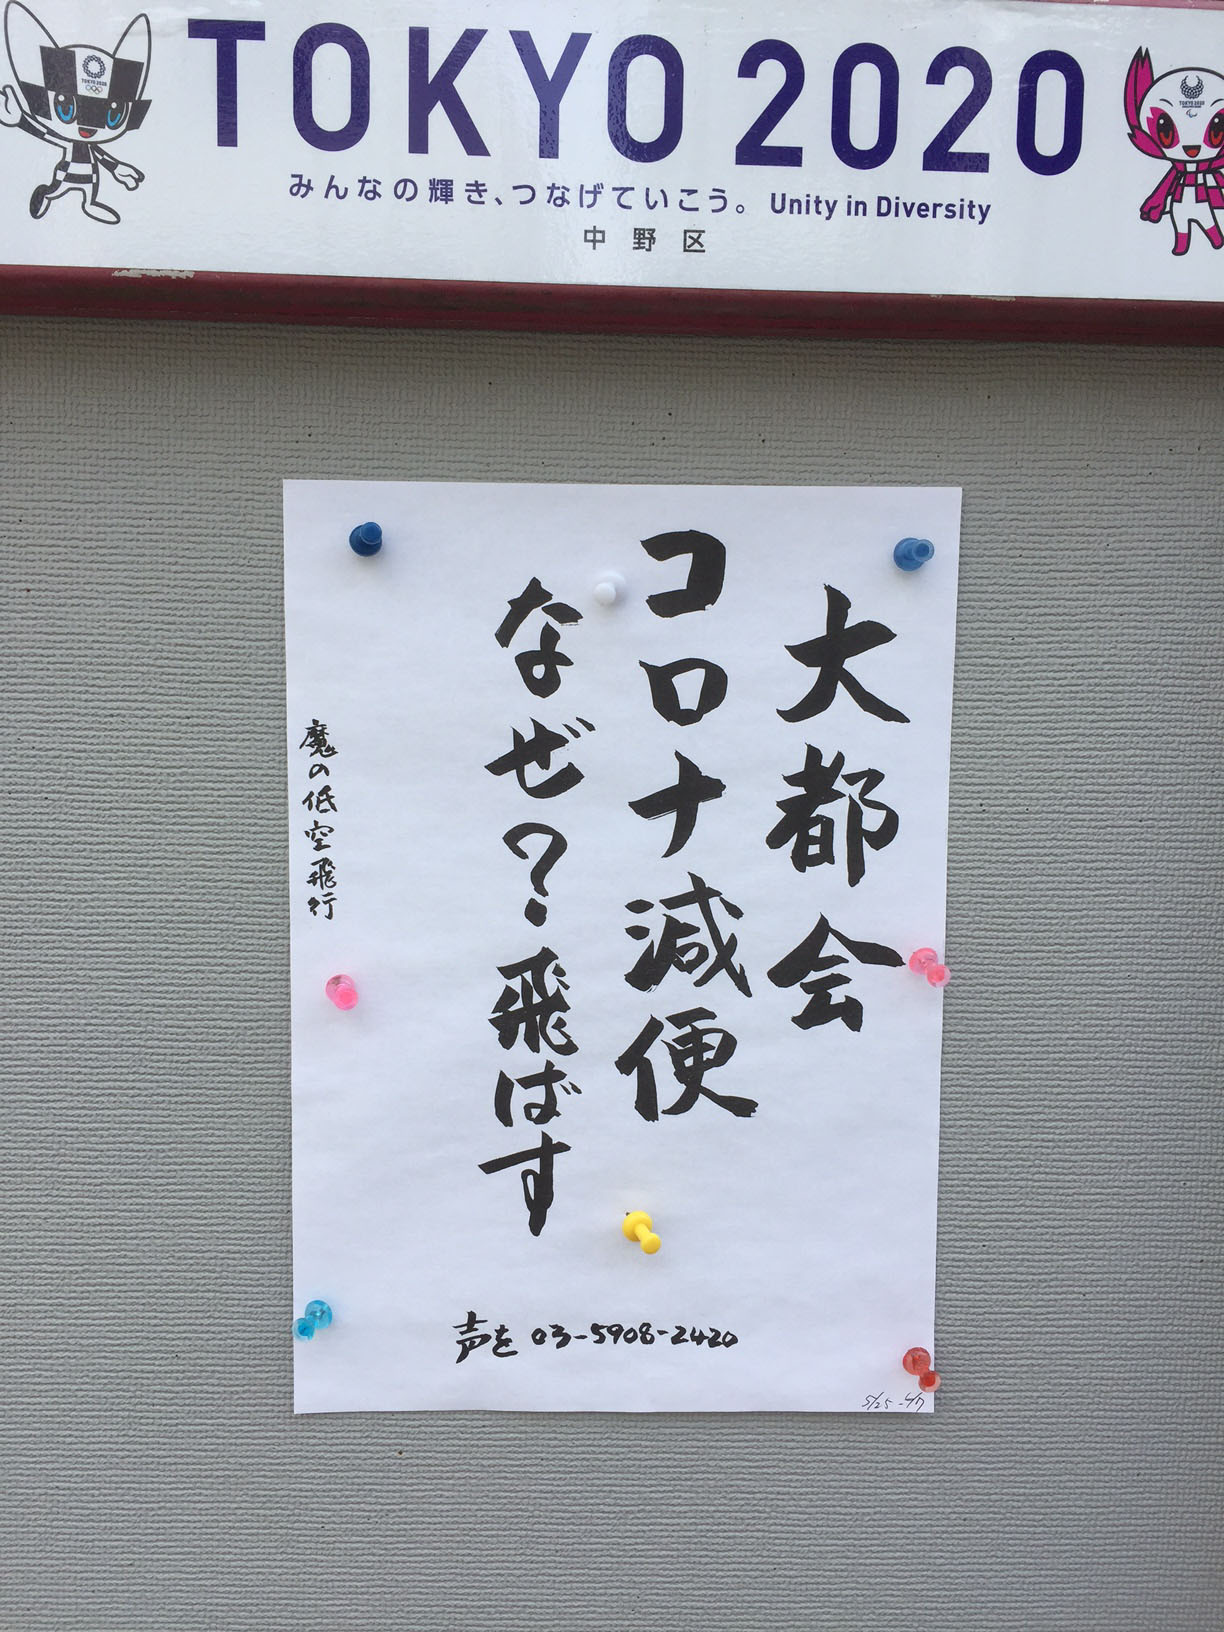 TOKYO 2020
みんなの輝き、つなげていこう。 Unity in Diversity
中野区
TOKYO 2020
TOKYO 2020
大都会
コロナ減便
なぜ?飛ばす
魔の低空飛行
声を 03-5908-2420
5/25-6/7